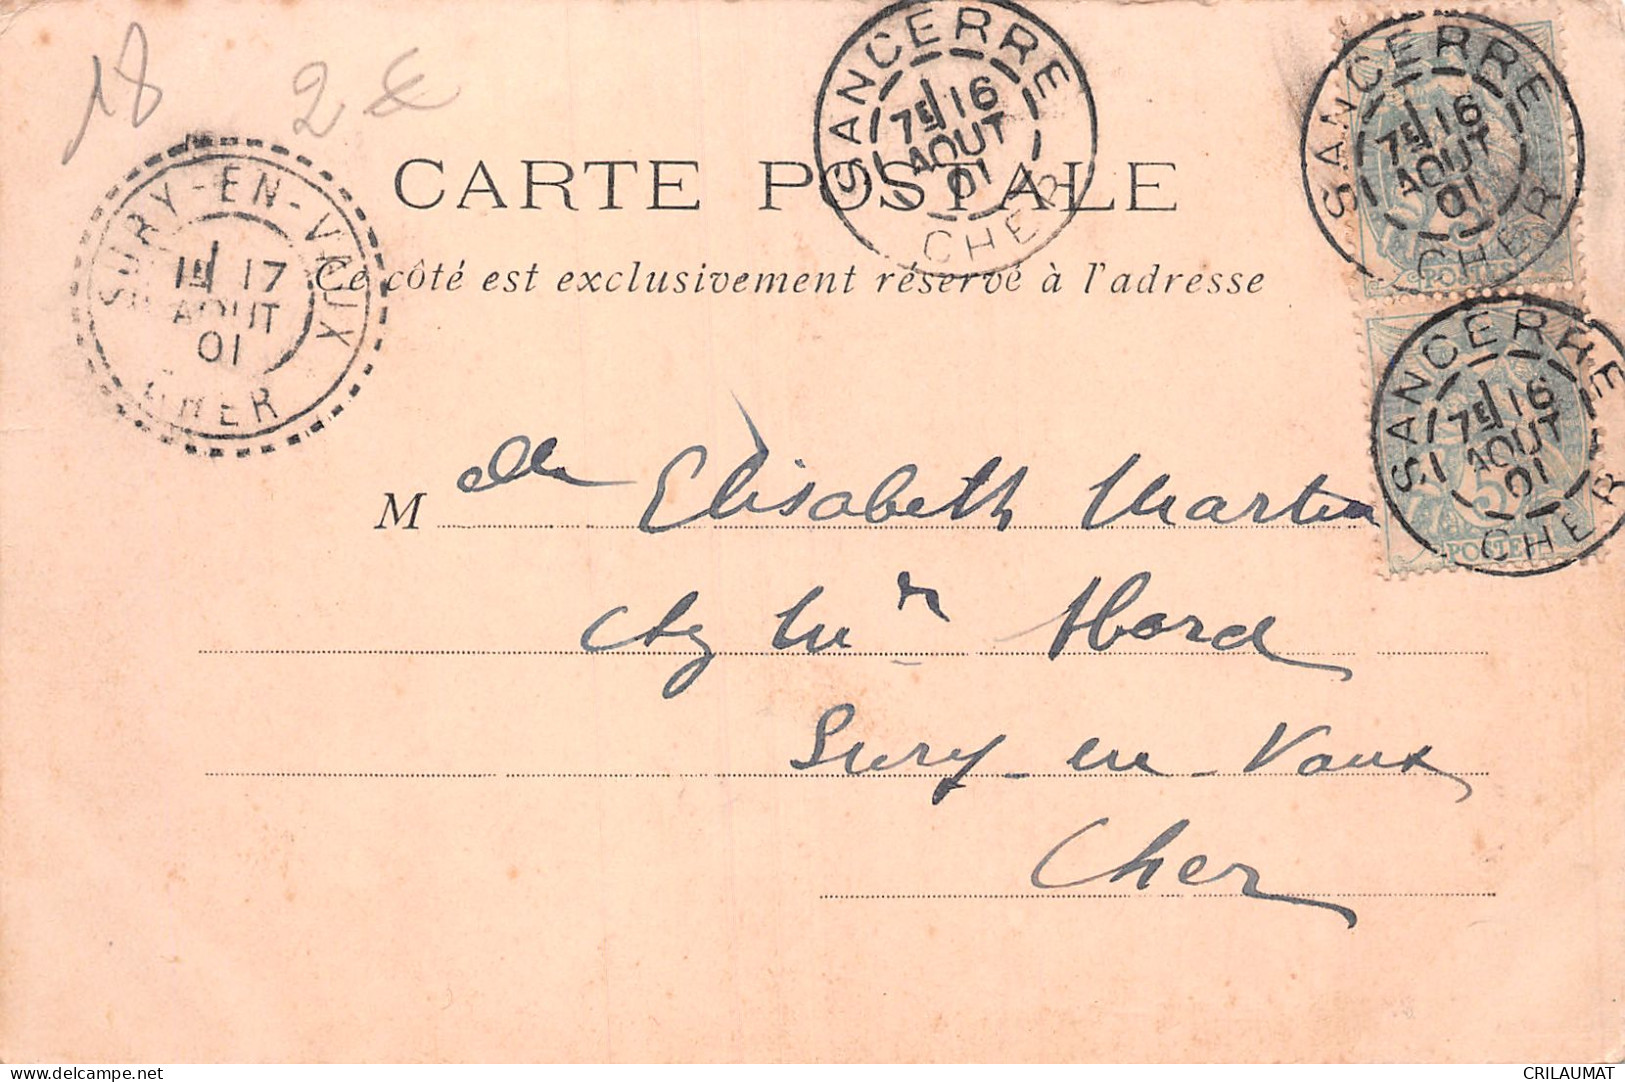 18 2€
SANCERRE
7E 16
AOUT
01
CHER
SANCERRE
7E 16
AOUT
01
CHER
POSTES
CARTE POSTALE
SURY-EN-VAUX
1E 17
AOUT
01
CHER
Ce côté est exclusivement réservé à l'adresse
SANCERRE
7E 16
AOUT
01
CHER
5
POSTES
M elle Elisabeth Martin
Sury-en-Vaux
Cher
CRILAUMAT